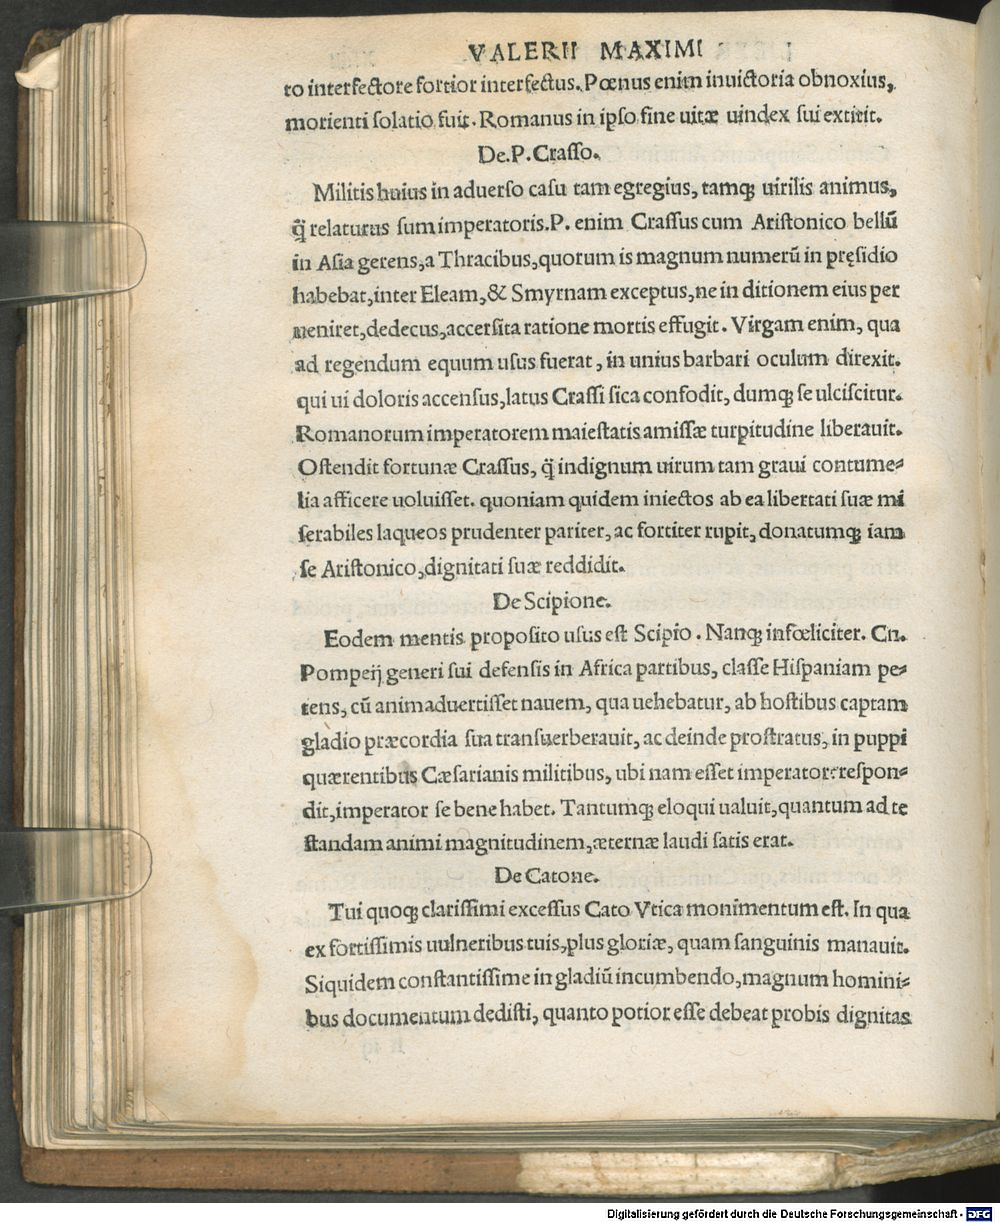 VALERII MAXIMI
to interfectore fortior interfectus. Pœnus enim in uictoria obnoxius,
morienti solatio fuit. Romanus in ipso fine uitæ uindex sui extitit.
De. P. Crasso.
Militis huius in aduerso casu tam egregius, tamq; uirilis animus,
q̃ relaturus sum imperatoris. P. enim Crassus cum Aristonico bellũ
in Asia gerens, a Thracibus, quorum is magnum numerũ in pręsidio
habebat, inter Eleam, & Smyrnam exceptus, ne in ditionem eius per
ueniret, dedecus, accersita ratione mortis effugit. Virgam enim, qua
ad regendum equum usus fuerat, in unius barbari oculum direxit.
qui ui doloris accensus, latus Crassi sica confodit, dumq; se ulciscitur.
Romanorum imperatorem maiestatis amissæ turpitudine liberauit.
Ostendit fortunæ Crassus, q̃ indignum uirum tam graui contume-
lia afficere uoluisset. quoniam quidem iniectos ab ea libertati suæ mi
serabiles laqueos prudenter pariter, ac fortiter rupit, donatumq; iam
se Aristonico, dignitati suæ reddidit.
De Scipione.
Eodem mentis proposito usus est Scipio. Nanq; infœliciter. Cn.
Pompeij generi sui defensis in Africa partibus, classe Hispaniam pe-
tens, cũ animaduertisset nauem, qua uehebatur, ab hostibus captam
gladio præcordia sua transuerberauit, ac deinde prostratus, in puppi
quærentibus Cæsarianis militibus, ubi nam esset imperator: respon-
dit, imperator se bene habet. Tantumq; eloqui ualuit, quantum ad te
standam animi magnitudinem, æternæ laudi satis erat.
De Catone.
Tui quoq; clarissimi excessus Cato Vtica monimentum est. In qua
ex fortissimis uulneribus tuis, plus gloriæ, quam sanguinis manauit.
Siquidem constantissime in gladiũ incumbendo, magnum homini-
bus documentum dedisti, quanto potior esse debeat probis dignitas
Digitalisierung gefördert durch die Deutsche Forschungsgemeinschaft - DFG